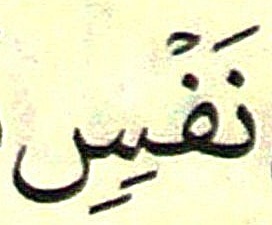 نَفْسِ